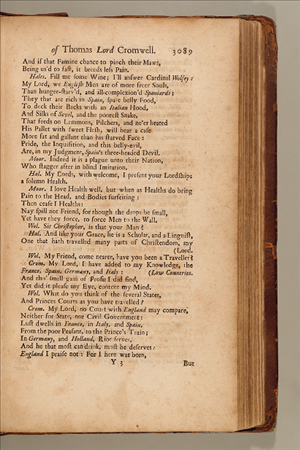 of Thomas Lord Cromwell. 3089
And if that Famine chance to pinch their Maws,
Being us'd to fast, it breeds less Pain.
Hales. Fill me some Wine; I'll answer Cardinal Wolsey:
My Lord, we English Men are of more freer Souls,
Than hunger-starv'd, and ill-complexion'd Spaniards:
They that are rich in Spain, spare belly Food,
To deck their Backs with an Italian Hood,
And Silks of Sevil, and the poorest Snake,
That feeds on Lemmons, Pilchers, and ne'er heated
His Pallet with sweet Flesh, will bear a case
More fat and gallant than his starved Face:
Pride, the Inquisition, and this belly-evil,
Are, in my Judgment, Spain's three-headed Devil.
Moor. Indeed it is a plague unto their Nation,
Who stagger after in blind Imitation.
Hal. My Lords, with welcome, I present your Lordships
a solemn Health.
Moor. I love Health well, but when as Healths do bring
Pain to the Head, and Bodies surfeiting:
Then cease I Healths:
Nay spill not Friend, for though the drops be small,
Yet have they force, to force Men to the Wall.
Wol. Sir Christopher, is that your Man?
Hal. And like your Grace, he is a Scholar, and a Linguist,
One that hath travelled many parts of Christendom, my
(Lord.
Wol. My Friend, come nearer, have you been a Traveller?
Crom. My Lord, I have added to my Knowledge, the
France, Spain, Germany, and Italy: (Low Countries.
And tho' small gain of Profit I did find,
Yet did it please my Eye, content my Mind.
Wol. What do you think of the several States,
And Princes Courts as you have travelled?
Crom. My Lord, no Court with England may compare,
Neither for State, nor Civil Government:
Lust dwells in France, in Italy, and Spain,
From the poor Peasant, to the Prince's Train;
In Germany, and Holland, Riot serves,
And he that most can drink, most he deserves:
England I praise not: For I here was born,
Y 3 But